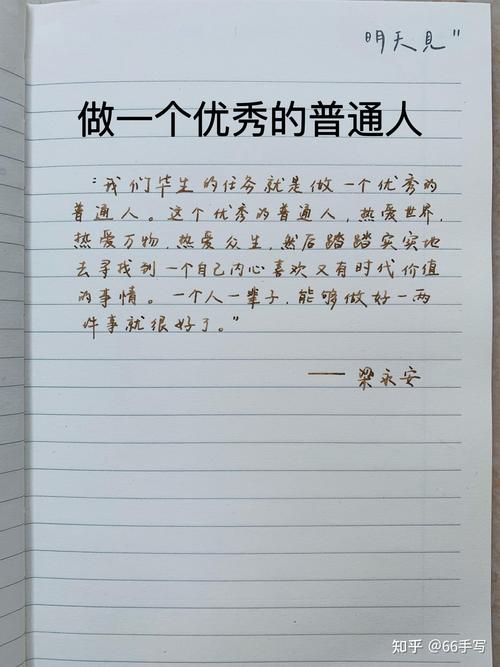 明天見”
做一个优秀的普通人
“我们毕生的任务就是做一个优秀的
普通人。这个优秀的普通人，热爱世界，
热爱万物，热爱众生，然后踏踏实实地
去寻找到一个自己内心喜欢又有时代价值
的事情。一个人一辈子，能够做好一两
件事就很好了。”
——梁永安
知乎 @66手写